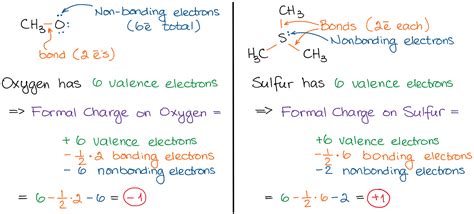 Non-bonding electrons
(6ē total)
CH₃–O:
bond (2ē's)
Oxygen has 6 valence electrons
=> Formal Charge on Oxygen =
+6 valence electrons
-1/2 · 2 bonding electrons
- 6 nonbonding electrons
= 6 - 1/2 · 2 - 6 = -1
CH₃
Bonds (2ē each)
S:
Nonbonding electrons
H₃C
CH₃
Sulfur has 6 valence electrons
=> Formal Charge on Sulfur =
+6 valence electrons
-1/2 · 6 bonding electrons
-2 nonbonding electrons
= 6 - 1/2 · 6 - 2 = +1